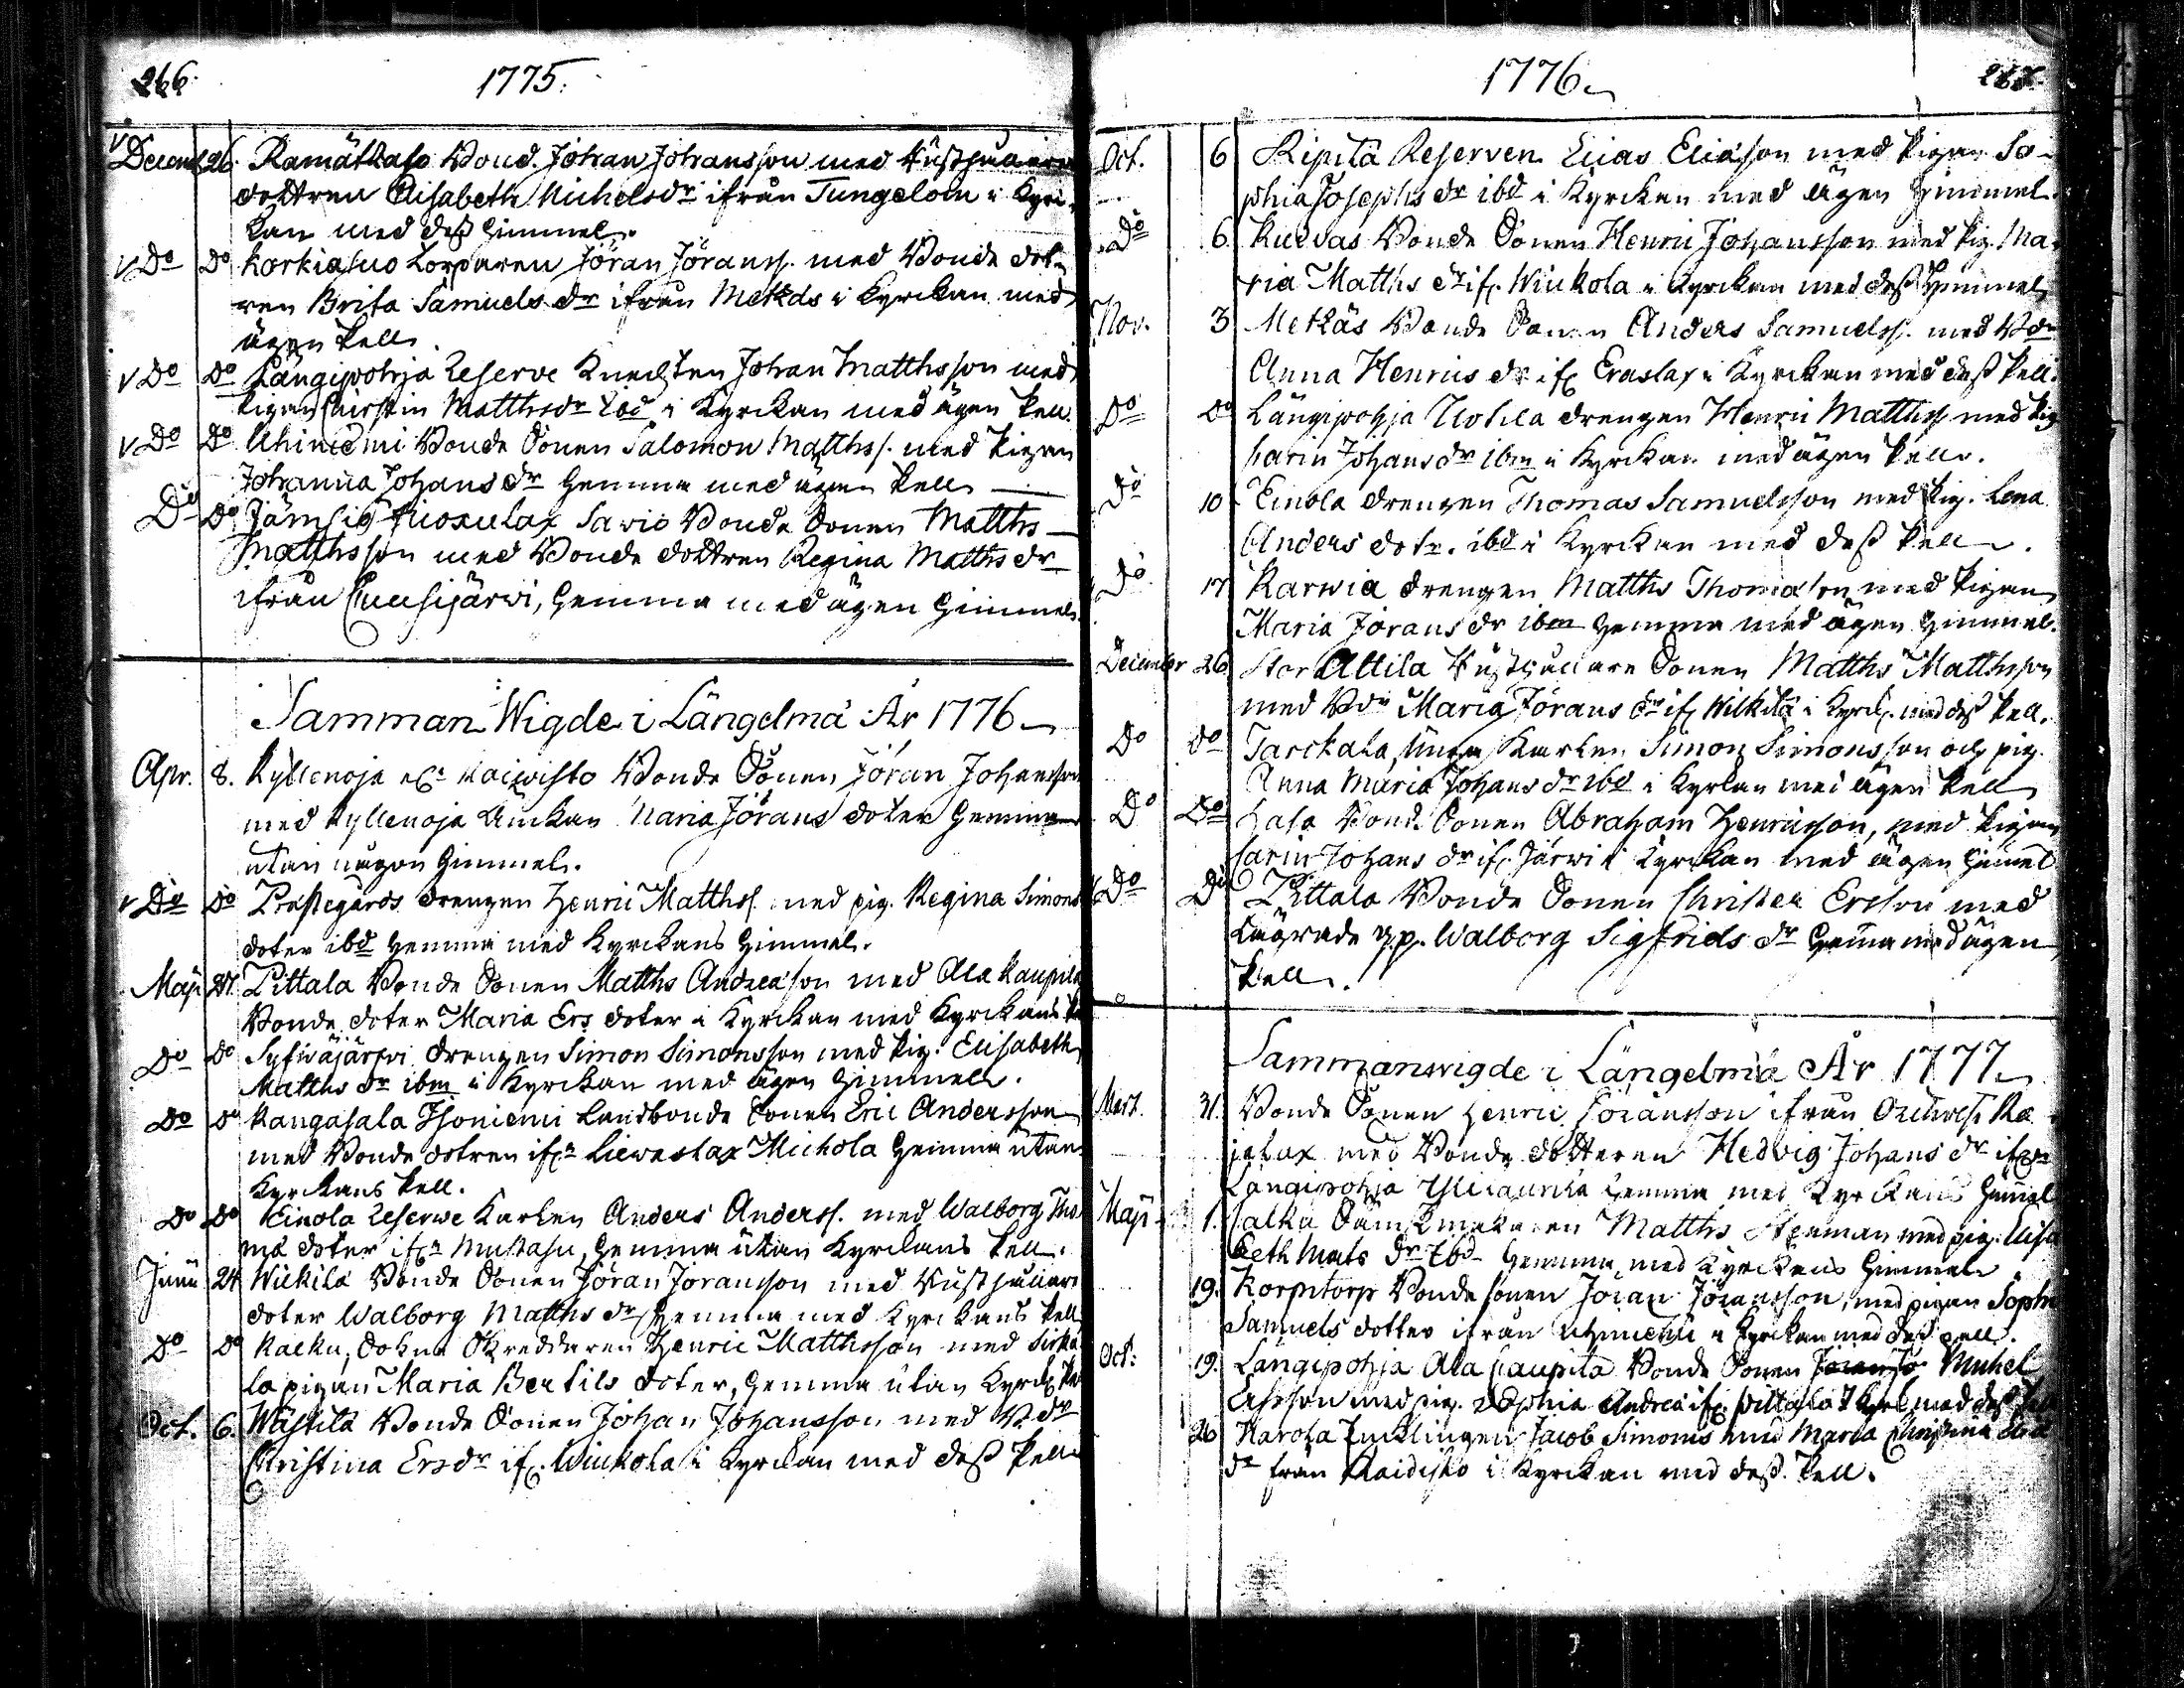 266.
1775.
Decemb. 26. Ramätkalo Bond. Johan Johansson med Rusthållare
dottren Elisabeth Michelsdr ifrån Tungelom i Kyrc-
kan med dess himmel.
Do Do Korkiasuo Torparen Jöran Jöranss. med Bonde dot-
ren Brita Samuels dr ifrån Metkäs i Kyrckan med
ägen Pell.
Do Do Längipohja Reserve Knechten Johan Matthsson med
Pigan Chirstin Matthsdr ibd i Kyrckan med ägen Pell.
Do Do Uhiniemi Bonde Sonen Salomon Matthss. med Pigan
Johanna Johans dr hemma med ägen Pell
Do Do Jämsiö Savio Bonde Sonen Matths
Matthsson med Bonde dottren Regina Matths dr
ifrån hemma med ägen himmel.
Samman Wigde i Längelmä År 1776
Apr. 8. Kyllenoja Bonde Sonen Jöran Johansson
med Kyllenoja Änckan Maria Jörans doter hemma
utan någon himmel.
Do Do Prästegårds drengen Henric Matthss. med pig. Regina Simons
doter ibd hemma med Kyrckans himmel.
Maji 27 Pittala Bonde Sonen Matths Andreæson med Ala Kaupila
Bonde doter Maria Ers doter i Kyrckan med Kyrckans
Do Do Sywäjärwi drengen Simon Simonsson med Pig. Elisabeth
Matths dr ibm i Kyrckan med ägen himmel.
Do Do Kangasala Isoniemi Landbonde Sonen Eric Andersson
med Bonde dotren Michola hemma utan
Kyrckans Pell.
Do Do Einola Reserve Karlen Anders Anderss. med Walborg Tho-
mæ doter ifr. Mustasu, hemma utan Kyrckans Pell.
Junii 24 Wilkilä Bonde Sonen Jöran Jöransson med Rusthållare
doter Walborg Matths dr hemma med Kyrckans Pell
Do Do Henric Matthsson med
pigan Maria Bertils doter, hemma utan Kyrck.
Oct. 6. Wästilä Bonde Sonen Johan Johansson med B. dr
Christina Ersdr if. Wiukola i Kyrckan med dess Pell
1776
267.
Oct. 6 Ripitä Reserven Elias Eliæson med Pigan So-
phia Josephs dr ibd i Kyrckan med ägen himmel.
Do 6. Kuevas Bonde Sonen Henric Johansson med Pig. Ma-
ria Matths dr if. Wiukola i Kyrckan med dess himmel
Nov. 3 Metkäs Bonde Sonen Anders Samuelss. med B dr
Anna Henrics dr if. Eraslax i Kyrckan med dess Pell.
Do Do Längipohja drengen Henric Matthss. med Pig
Carin Johans dr ibm i Kyrckan med ägen Pell.
Do 10 Einola drengen Thomas Samuelsson med Pig. Lena
Anders dotr. ibd i Kyrckan med dess Pell.
Do 17 Karwia drengen Matths Thomæson med Pigan
Maria Jörans dr ibm hemma med ägen himmel.
December 26 Stor Attila Rusthållare Sonen Matths Matthsson
med B dr Maria Jörans dr if. Wilkilä i Kyrck. med dess Pell.
Do Do Karlen Simon Simonsson och pig.
Anna Maria Johans dr ibd i Kyrkan med ägen Pell
Do Do Hala Bond. Sonen Abraham Henricsson, med Pigan
Carin Johans dr if. Järwi i Kyrckan med ägen himel
Do Do Pittala Bonde Sonen Christer Ersson med
Walborg Sigfrids dr hemma med ägen
Pell.
Sammanvigde i Längelmä År 1777
Mart. 31. Bonde Sonen Henric Jöransson ifrån
med Bonde dotteren Hedvig Johans dr
Längipohja hemma med Kyrckans himel
Maji 1. Matths med pig. Elisa
beth Mats dr ibd hemma med Kyrckans himmel
19. Korpitorp Bonde sonen Jöran Jöransson, med pigan Sophi
Samuels dotter ifrån i Kyrckan med dess pell.
Oct: 19. Längipohja Ala Caupila Bonde Sonen Michel
Ersson med pig. Sophia med dess
26 Jacob Simonis med Maria Christina
dr från i Kyrckan med dess Pell.